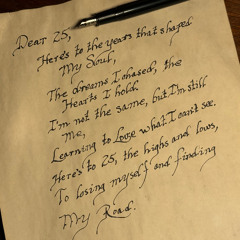 Dear 25,
Here's to the years that shaped
My Soul,
The dreams I chased, the
Hearts I hold.
I'm not the same, but I'm still
Me,
Learning to Love what I can't see.
Here's to 25, the highs and lows,
To losing myself and finding
My Road.